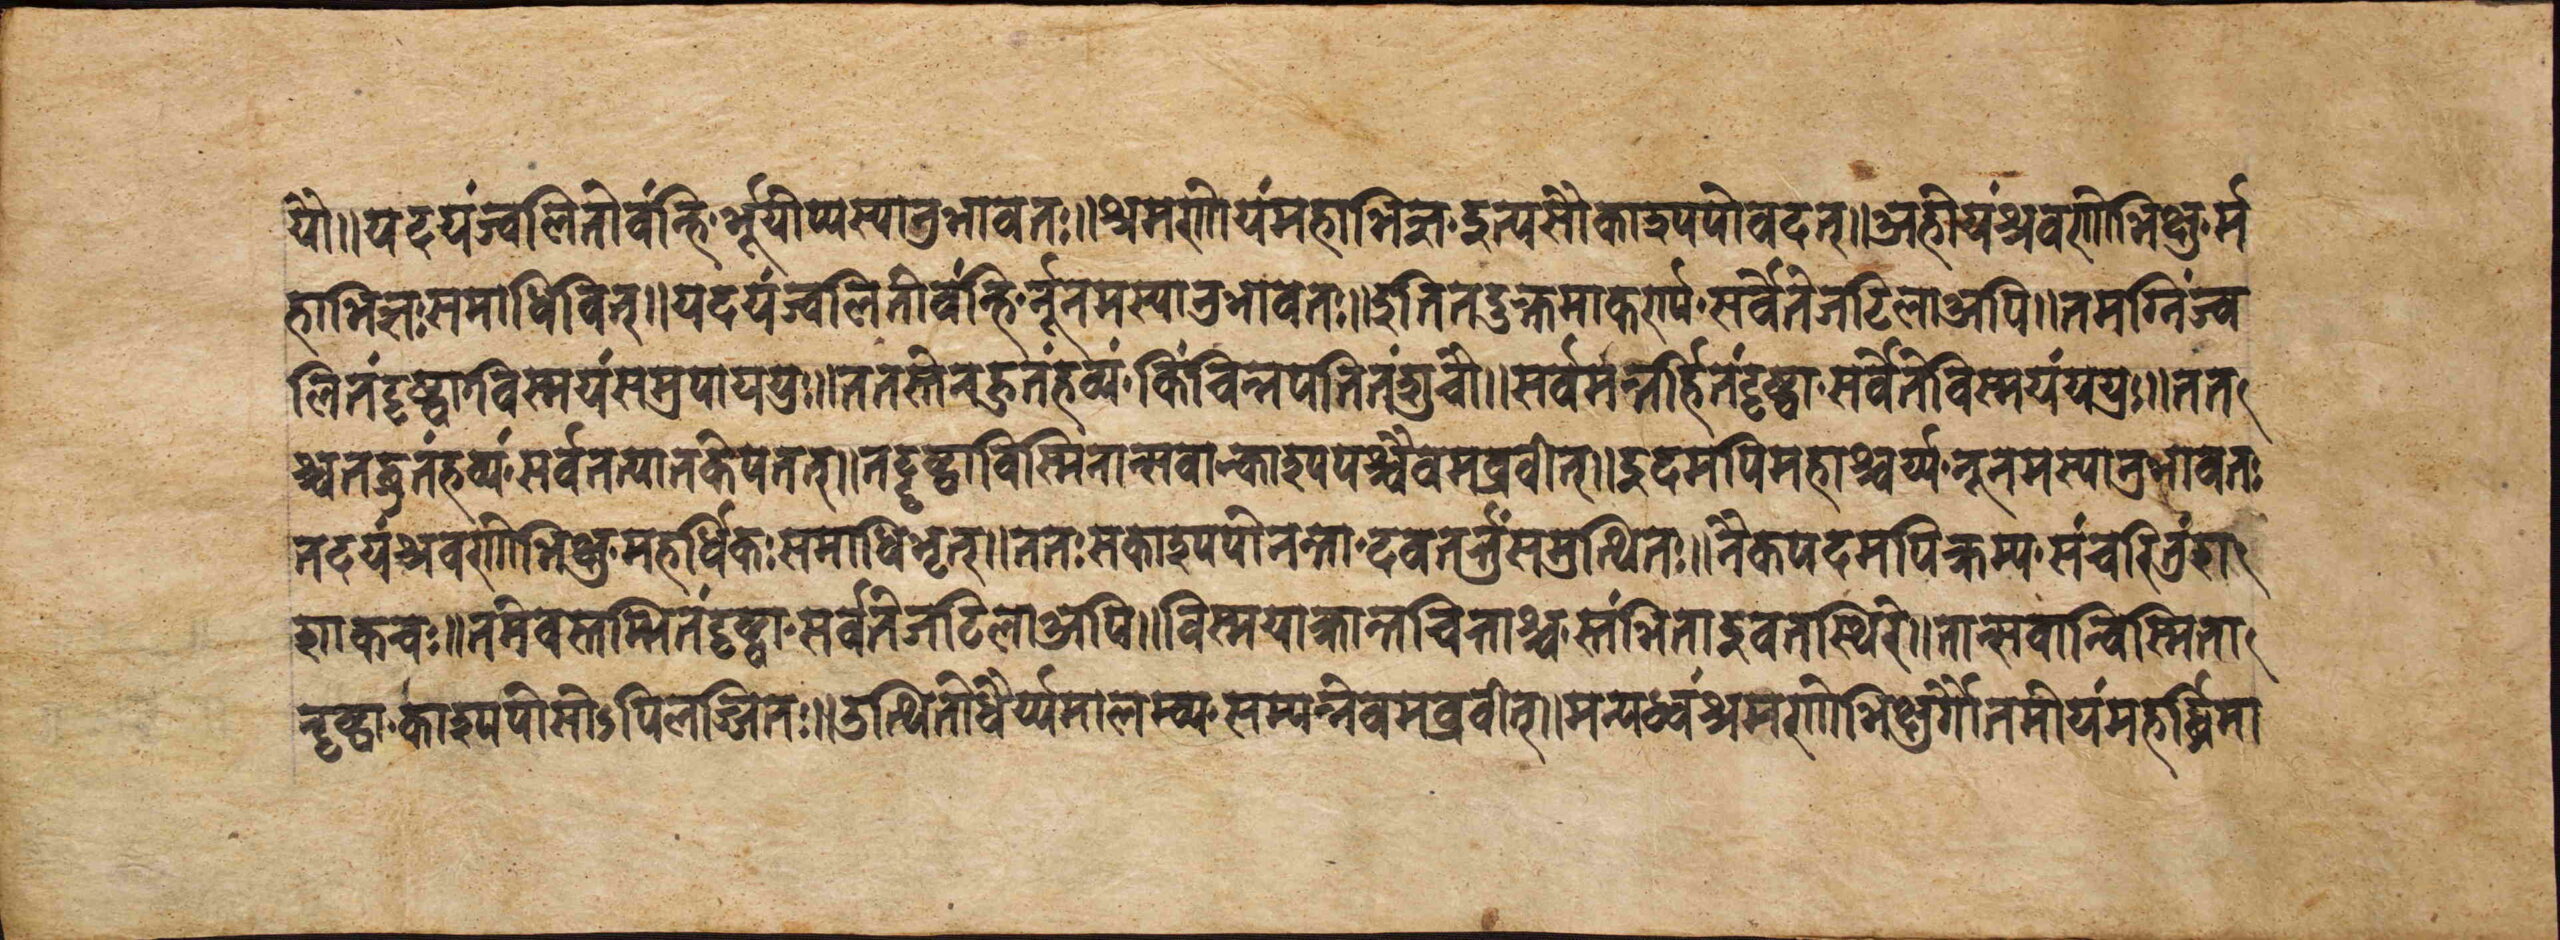 यौ॥यदयंज्वलितोवंह्नि॰र्भूयोप्यस्यानुभावतः॥श्रमणोयंमहाभिज्ञ॰इत्यसौकाश्यपोवदत्॥अहोयंश्रवणोभिक्षु॰र्म
हाभिज्ञःसमाधिवित्॥यदयंज्वलितोवंह्नि॰र्नूनमस्यानुभावतः॥इतितदुक्तमाकर्ण्य॰सर्वेतेजटिलाअपि॥तमग्निंज्व
लितंदृष्ट्वा॰विस्मयंसमुपाययुः॥ततस्तेनहुतंहव्यं॰किंचिन्नपतितंशुचौ॥सर्वमन्तर्हितंदृष्ट्वा॰सर्वेतेविस्मयंययुः॥तत
श्चतद्धुतंहव्यं॰सर्वतत्यानकेपतत्॥तद्दृष्ट्वाविस्मितान्सर्वान्काश्यपश्चैवमब्रवीत्॥इदमपिमहाश्चर्य्य॰नूनमस्यानुभावतः
तदयंश्रवणोभिक्षु॰महर्धिकःसमाधिभृत्॥ततःसकाश्यपोनन्ता॰देवतर्तुंसमुत्थितः॥नैकपदमपिक्रम्य॰संचरितुंशा
शाकन्वः॥तमेवस्तम्भितंदृष्ट्वा॰सर्वेतेजटिलाअपि॥विस्मयाक्रान्तचित्ताश्च॰स्तंभिताइवतस्थिरे॥तान्सर्वान्विस्मिता
न्दृष्ट्वा॰काश्यपोसोऽपिलज्जितः॥उत्थितोधैर्य्यमालम्ब्य॰सम्पन्नेवमब्रवीत्॥मन्यध्वंश्रमणोभिक्षुर्गौतमोयंमहर्द्धिमा